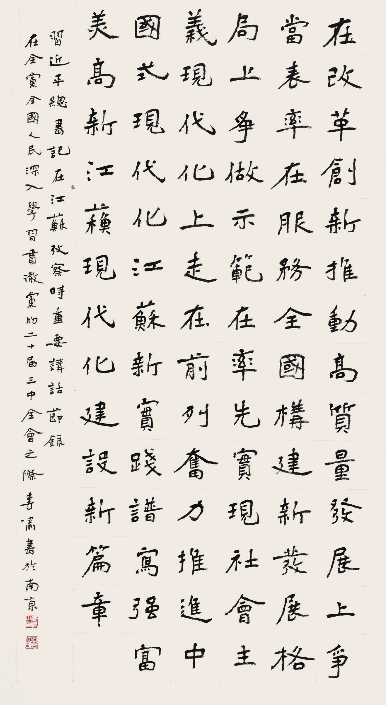 在改革創新推動高質量發展上爭
當表率在服務全國構建新發展格
局上爭做示範在率先實現社會主
義現代化上走在前列奮力推進中
國式現代化江蘇新實踐譜寫强富
美高新江蘇現代化建設新篇章
習近平總書記在江蘇攷察時重要講話節錄
在全黨全國人民深入學習貫澈黨的二十屆三中全會之際 書於南京